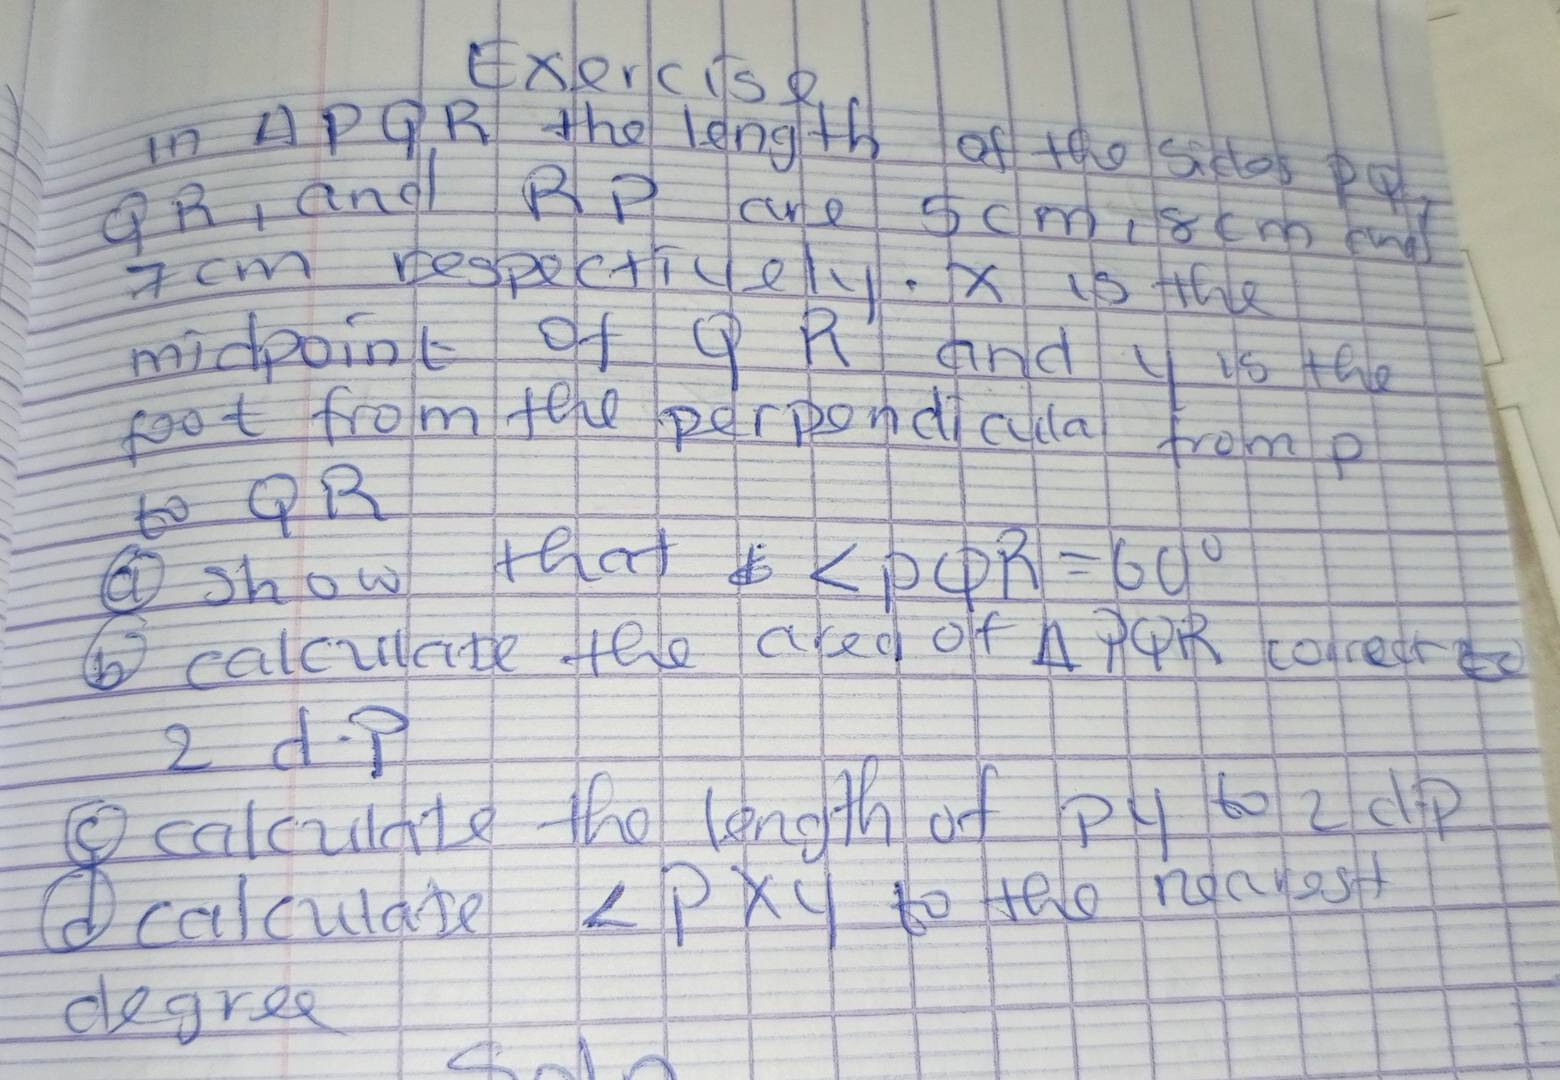 Exercise
in Δ PQR the length of the sides PQ,
QR, and RP are 5cm, 8cm and
7cm respectively. X is the
midpoint of QR and y is the
foot from the perpendicula from p
to QR
(a) show that < PQR = 60°
(b) calculate the area of Δ PQR correct to
2 d.P
(c) calculate the length of PY to 2 d.p
(d) calculate < PXY to the nearest
degree
Soln